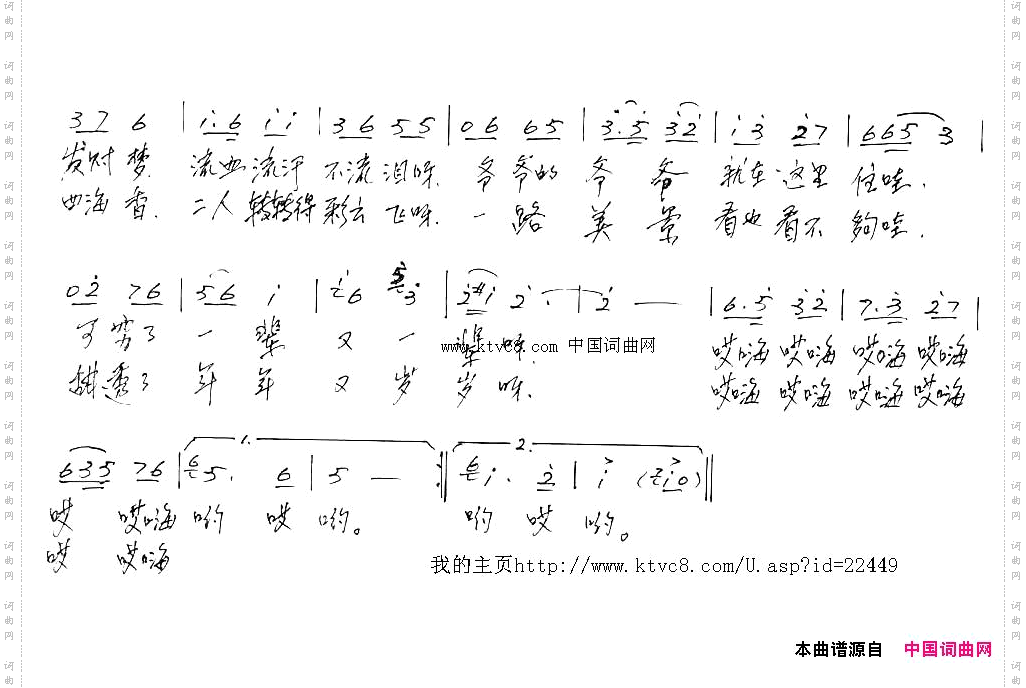 3 7 6 | i. 6 i i | 3 6 5 5 | 0 6 6 5 | 3. 5 3 2 | i 3 2 7 | 6 6 5 3 |
发财梦. 流血流汗不流泪呀. 爷爷的爷爷就在这里住哇.
四海香. 二人转转得彩云飞呀. 一路美景看也看不够哇.
0 2 7 6 | 5 6 i | 2 6 3 | 2 #i 2 . | 2 — | 6. 5 3 2 | 7. 3 2 7 |
可穷了一辈又一辈呀. 哎嗨哎嗨哎嗨哎嗨
了年年又岁岁呀. 哎嗨哎嗨哎嗨哎嗨
www.ktvc8.com 中国词曲网
6 3 5 7 6 | 1. 5. 6 | 5 — :|| 2. i. 2 | i (i 0) ||
哎 哎嗨哟哎哟。 哟哎哟。
哎 哎嗨
我的主页http://www.ktvc8.com/U.asp?id=22449
本曲谱源自 中国词曲网
词曲网